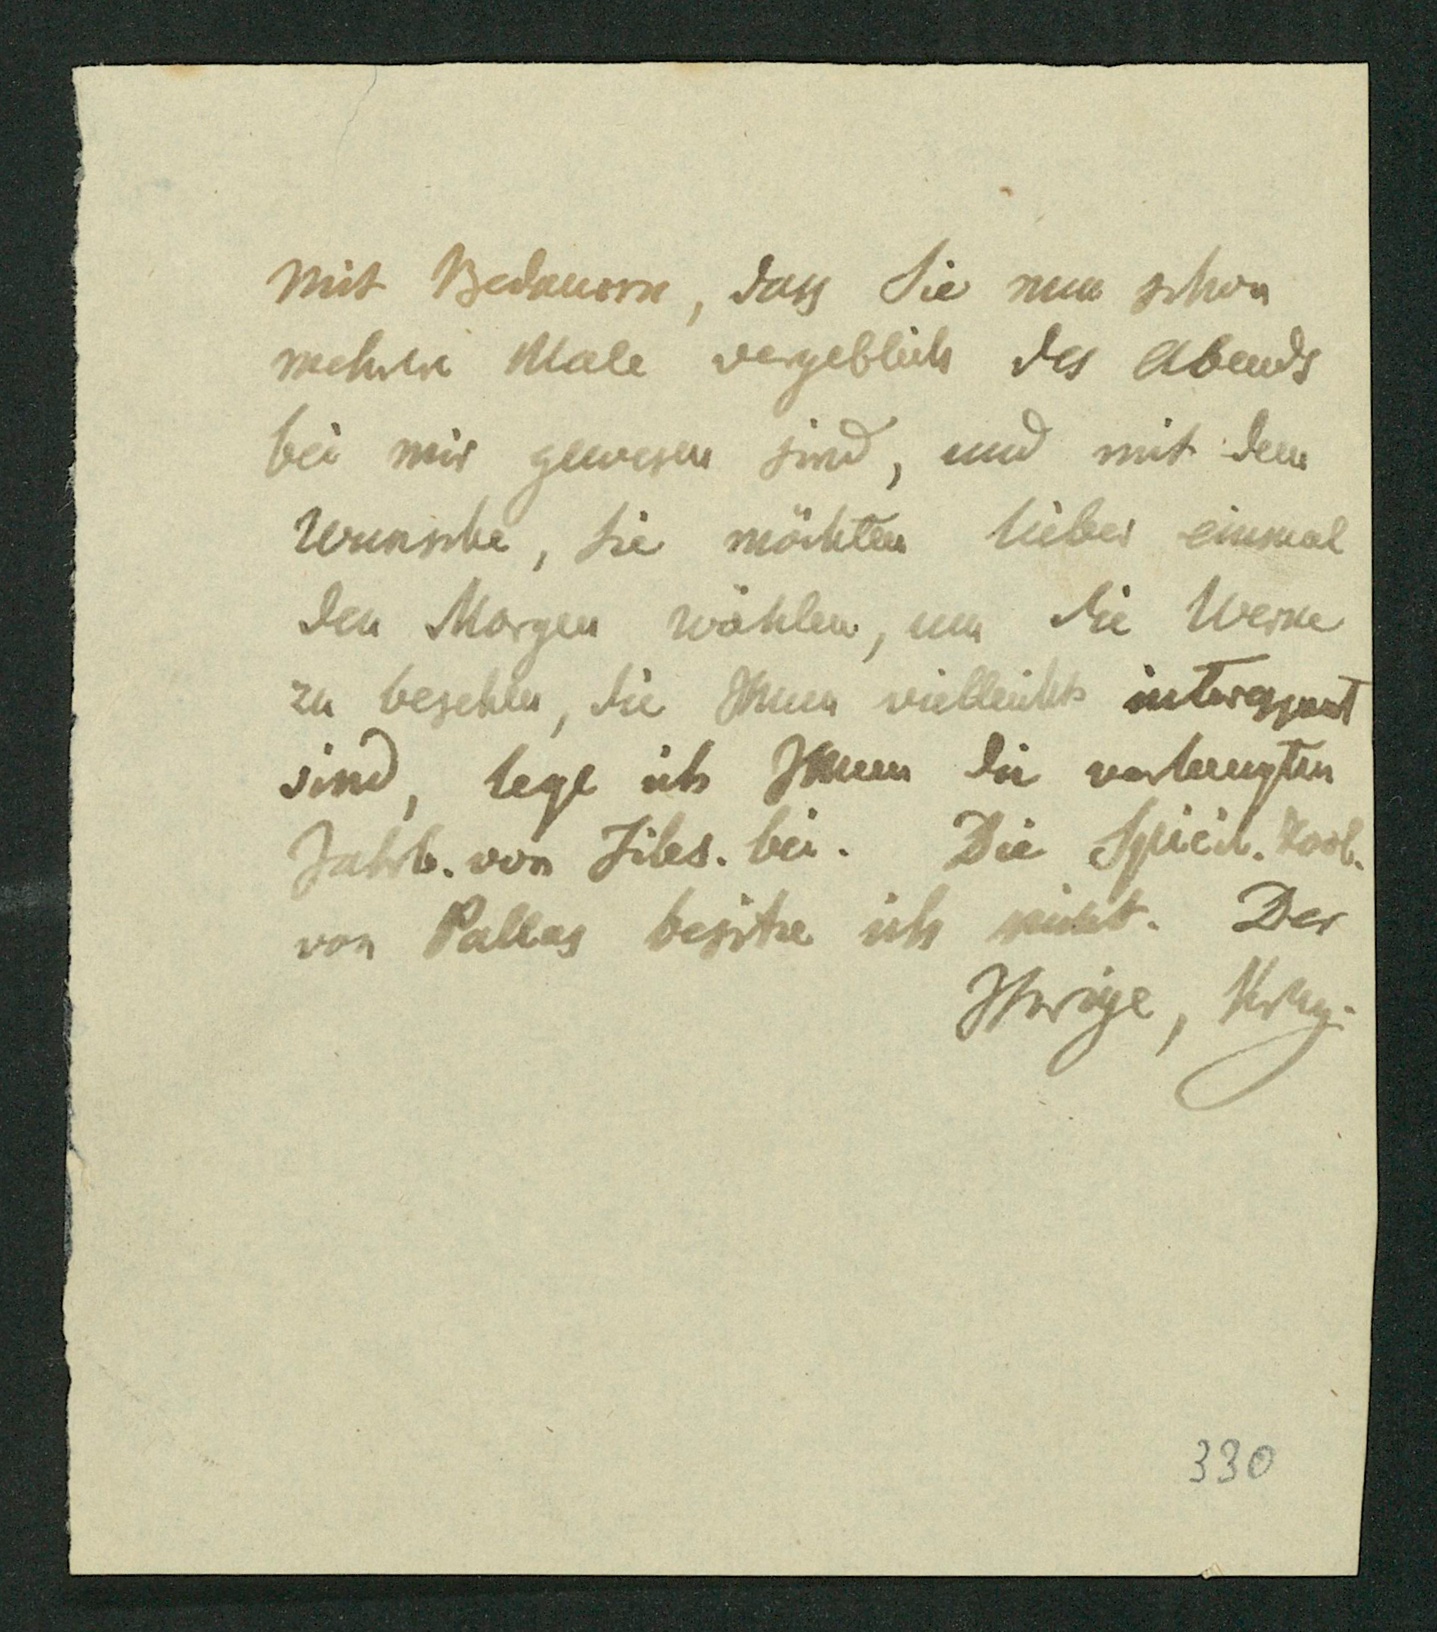 Mit Bedauern, dass Sie nun schon
mehrere Male vergeblich des Abends
bei mir gewesen sind, und mit dem
Wunsche, Sie möchten lieber einmal
den Morgen wählen, um die Werke
zu besehen, die Ihnen vielleicht interessant
sind, lege ich Ihnen die verlangten
Jahrb. von bei. Die Spicil. Zool.
von Pallas besitze ich nicht. Der
Ihrige,
330